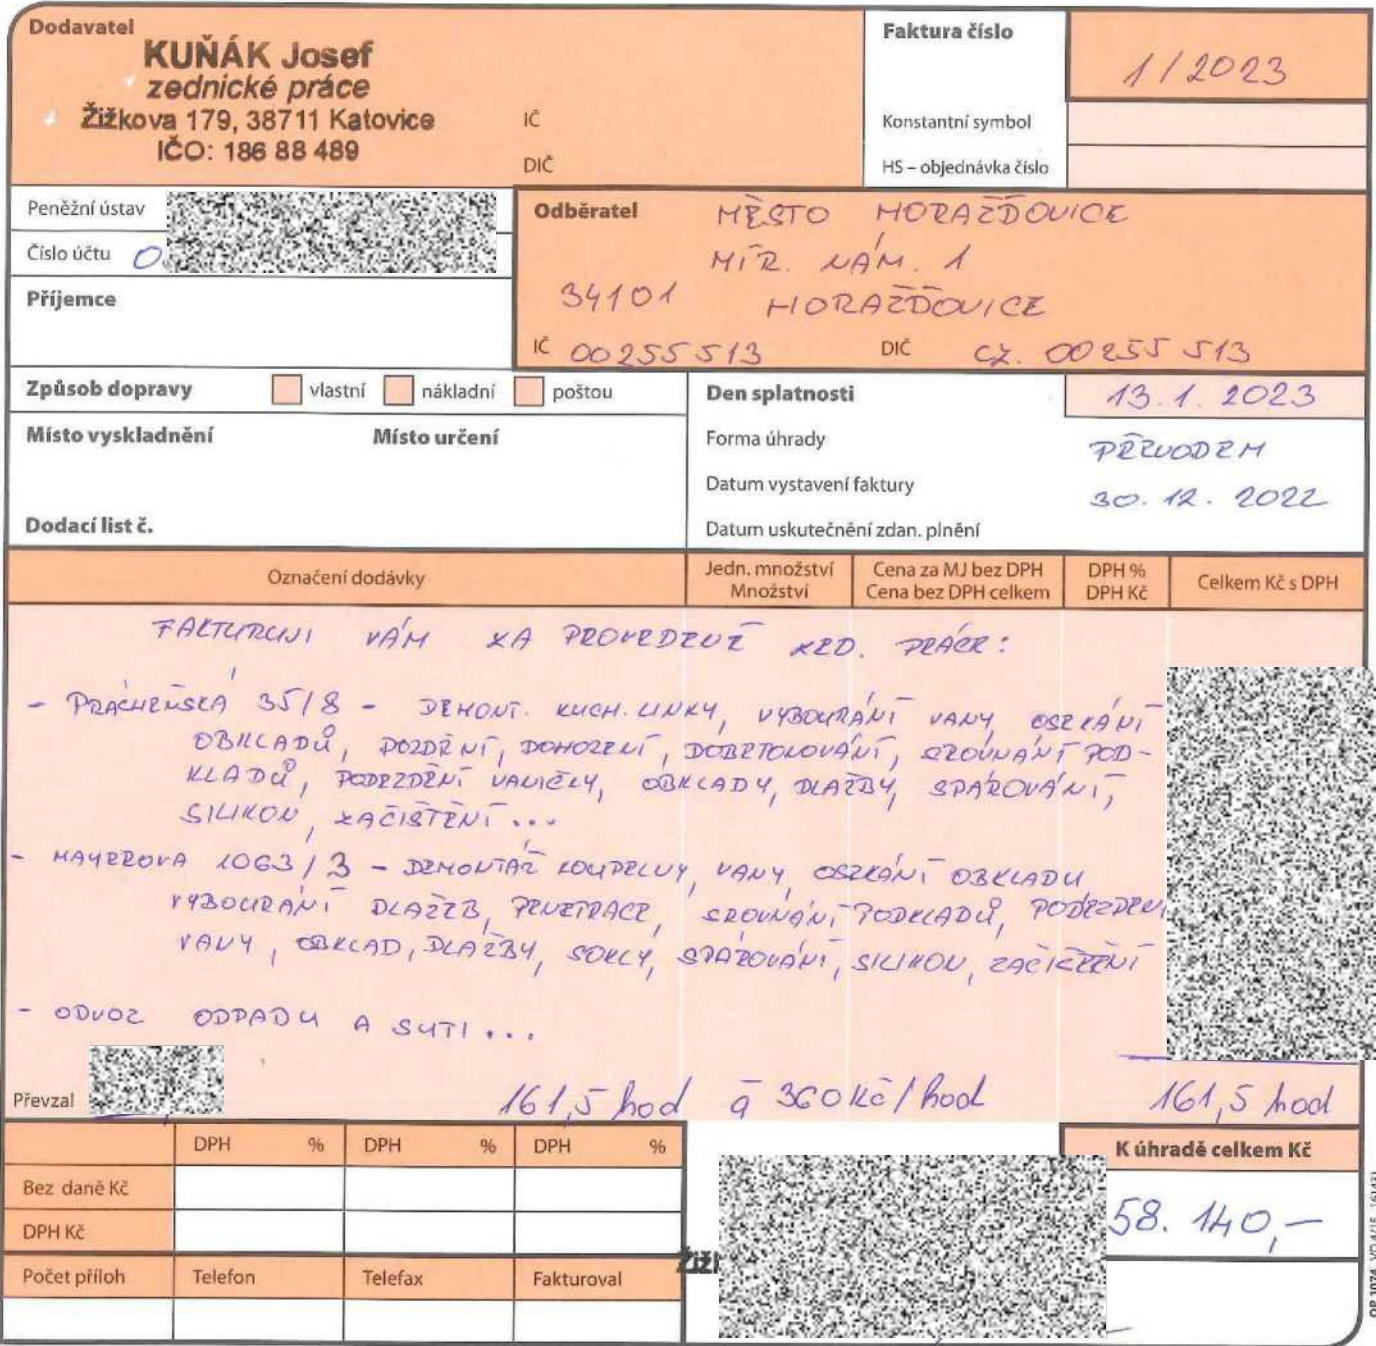 Dodavatel
KUŇÁK Josef
zednické práce
Žižkova 179, 38711 Katovice
IČO: 186 88 489
IČ
DIČ
Faktura číslo 1/2023
Konstantní symbol
HS – objednávka číslo
Peněžní ústav
Číslo účtu 0
Příjemce
Odběratel MĚSTO HORAŽĎOVICE
MÍR. NÁM. 1
34101 HORAŽĎOVICE
IČ 00255513 DIČ CZ. 00255513
Způsob dopravy vlastní nákladní poštou
Místo vyskladnění Místo určení
Dodací list č.
Den splatnosti 13.1.2023
Forma úhrady PŘEVODEM
Datum vystavení faktury 30.12.2022
Datum uskutečnění zdan. plnění
Označení dodávky
Jedn. množství
Množství
Cena za MJ bez DPH
Cena bez DPH celkem
DPH %
DPH Kč
Celkem Kč s DPH
FAKTURUJI VÁM ZA PROVEDENÉ ZED. PRÁCE:
- PRÁCHEŇSKÁ 35/8 - DEMONT. KUCH. LINKY, VYBOURÁNÍ VANY, OSEKÁNÍ
OBKLADŮ, POZDĚNÍ, DOHOZENÍ, DOBETONOVÁNÍ, SROVNÁNÍ POD-
KLADŮ, PODEZDĚNÍ VANIČKY, OBKLADY, DLAŽBY, SPÁROVÁNÍ,
SILIKON, ZAČIŠTĚNÍ...
- MAYEROVA 1063/3 - DEMONTÁŽ KOUPELNY, VANY, OSEKÁNÍ OBKLADU
VYBOURÁNÍ DLAŽEB, PENETRACE, SROVNÁNÍ PODKLADŮ, PODEZDENÍ
VANY, OBKLAD, DLAŽBY, SOKLY, SPÁROVÁNÍ, SILIKON, ZAČIŠTĚNÍ
- ODVOZ ODPADU A SUTI...
Převzal
161,5 hod á 360 Kč/hod 161,5 hod
DPH % DPH % DPH %
Bez daně Kč
DPH Kč
Počet příloh Telefon Telefax Fakturoval
K úhradě celkem Kč
58.140,-
Žiž